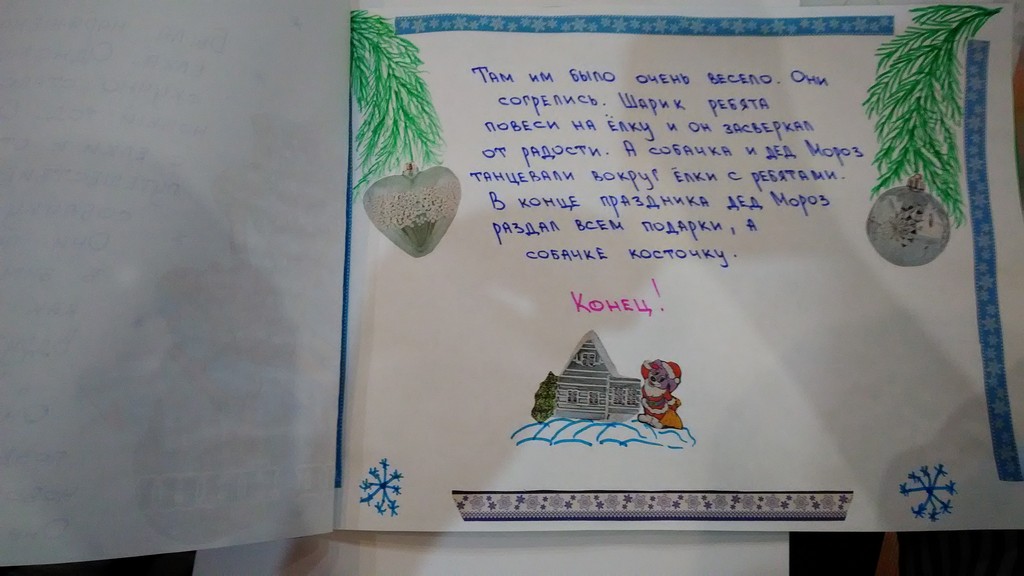 Там им было очень весело. Они
согрелись. Шарик ребята
повеси на ёлку и он засверкал
от радости. А собачка и дед Мороз
танцевали вокруг ёлки с ребятами.
В конце праздника дед Мороз
раздал всем подарки, а
собачкё косточку.
Конец!